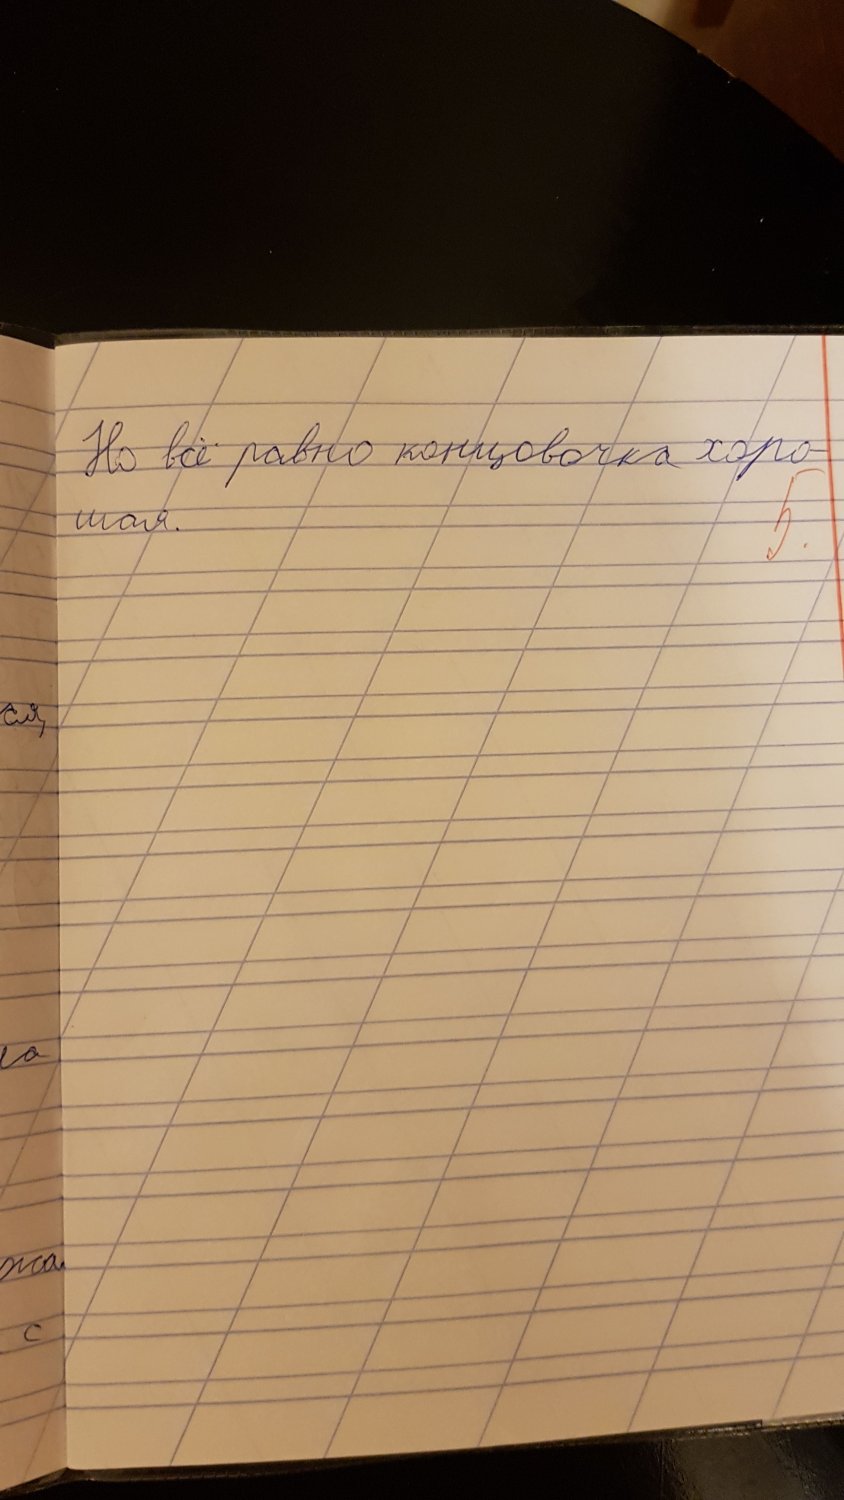 Но всё равно концовочка хоро-
шая.
5.
ся,
ла
жа
с